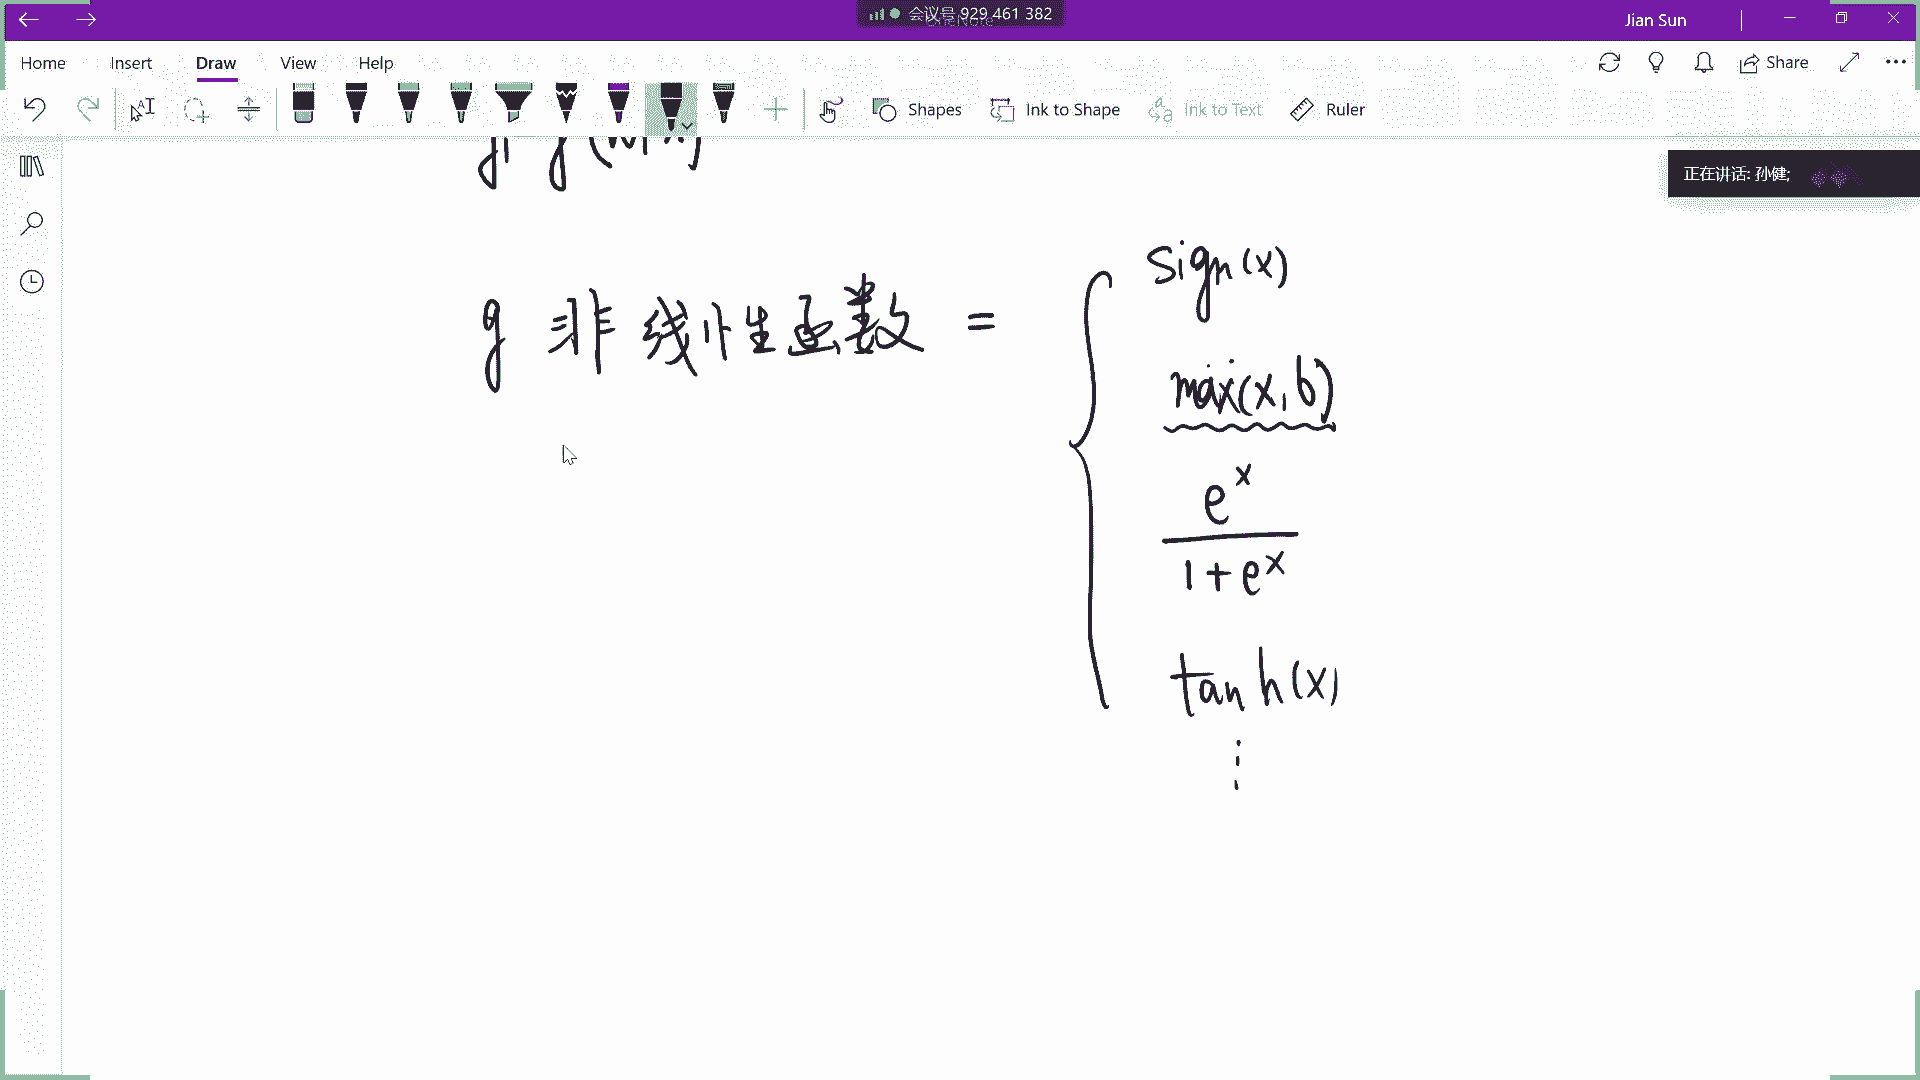 会议号 929 461 382
Jian Sun
Home Insert Draw View Help
Share
Shapes Ink to Shape Ink to Text Ruler
正在讲话: 孙健;
g 非线性函数 =
sign(x)
max(x,b)
e^x
1+e^x
tanh(x)
⋮